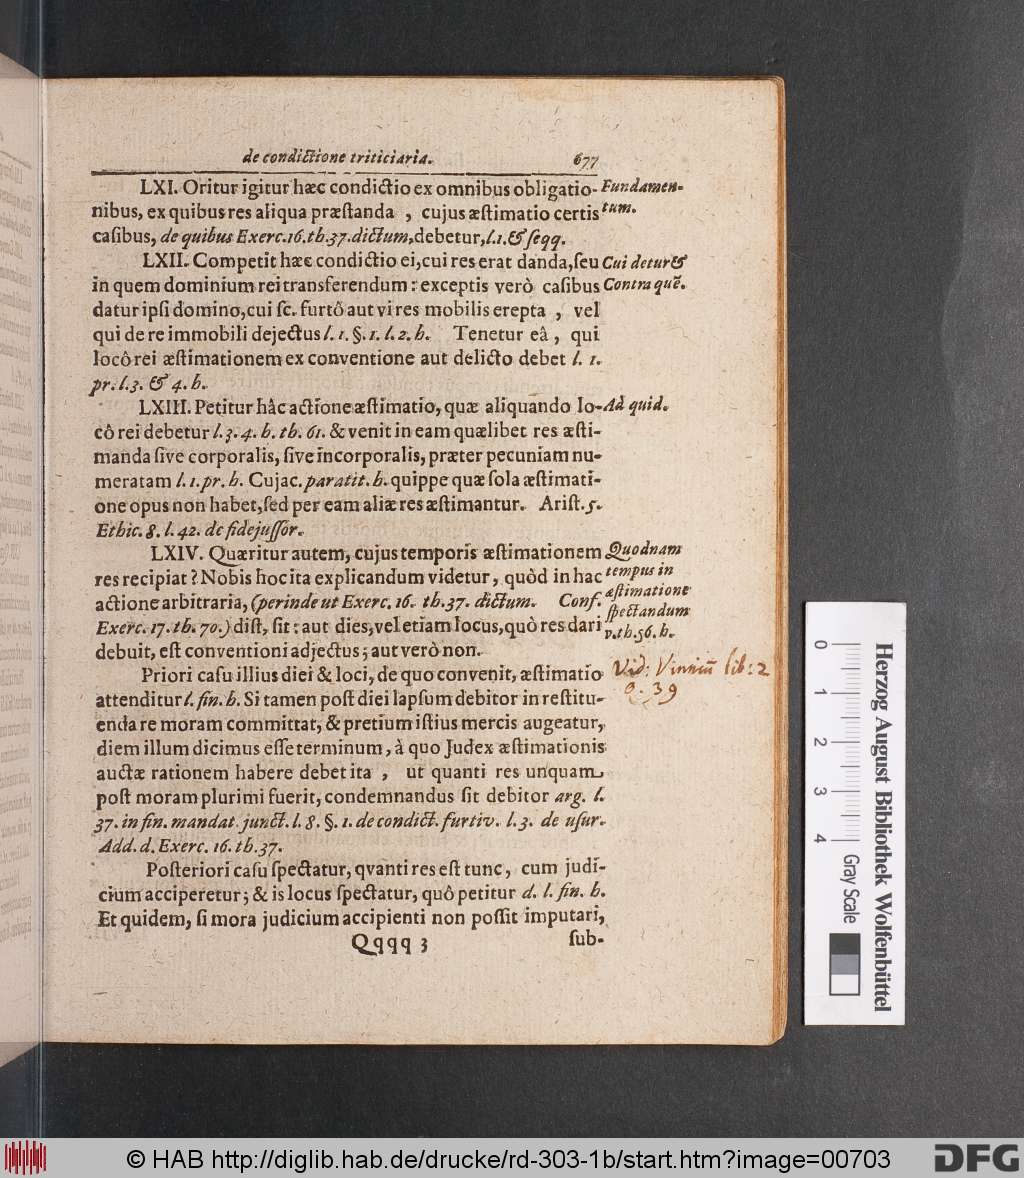 de condictione triticiaria. 677
LXI. Oritur igitur hæc condictio ex omnibus obligatio- Fundamen-
nibus, ex quibus res aliqua præſtanda , cujus æſtimatio certis tum.
caſibus, de quibus Exerc. 16. th. 37. dictum, debetur, l. 1. & ſeqq.
LXII. Competit hæc condictio ei, cui res erat danda, ſeu Cui detur &
in quem dominium rei transferendum : exceptis verò caſibus Contra quē.
datur ipſi domino, cui ſc. furtô aut vi res mobilis erepta , vel
qui de re immobili dejectus l. 1. §. 1. l. 2. h. Tenetur eâ , qui
locô rei æſtimationem ex conventione aut delicto debet l. 1.
pr. l. 3. & 4. h.
LXIII. Petitur hâc actione æſtimatio, quæ aliquando lo- Ad quid.
cô rei debetur l. 3. 4. h. th. 61. & venit in eam quælibet res æſti-
manda ſive corporalis, ſive incorporalis, præter pecuniam nu-
meratam l. 1. pr. h. Cujac. paratit. h. quippe quæ ſola æſtimati-
one opus non habet, ſed per eam aliæ res æſtimantur. Ariſt. 5.
Ethic. 8. l. 42. de fidejuſſor.
LXIV. Quæritur autem, cujus temporis æſtimationem Quodnam
res recipiat ? Nobis hoc ita explicandum videtur, quòd in hac tempus in
actione arbitraria, (perinde ut Exerc. 16. th. 37. dictum. Conf. æſtimatione
Exerc. 17. th. 70.) diſt, ſit : aut dies, vel etiam locus, quô res dari ſpectandum
debuit, eſt conventioni adjectus ; aut verò non. v. th. 56. h.
Priori caſu illius diei & loci, de quo convenit, æſtimatio Vid: Vinniū lib: 2
attenditur l. fin. h. Si tamen poſt diei lapſum debitor in reſtitu- q. 39
enda re moram committat, & pretium iſtius mercis augeatur,
diem illum dicimus eſſe terminum, à quo Judex æſtimationis
auctæ rationem habere debet ita , ut quanti res unquam
poſt moram plurimi fuerit, condemnandus ſit debitor arg. l.
37. in fin. mandat. junct. l. 8. §. 1. de condict. furtiv. l. 3. de uſur.
Add. d. Exerc. 16. th. 37.
Poſteriori caſu ſpectatur, qvanti res eſt tunc, cum judi-
cium acciperetur ; & is locus ſpectatur, quô petitur d. l. fin. h.
Et quidem, ſi mora judicium accipienti non poſſit imputari,
Qqqq 3 ſub-
0 1 2 3 4 Gray Scale
Herzog August Bibliothek Wolfenbüttel
© HAB http://diglib.hab.de/drucke/rd-303-1b/start.htm?image=00703
DFG